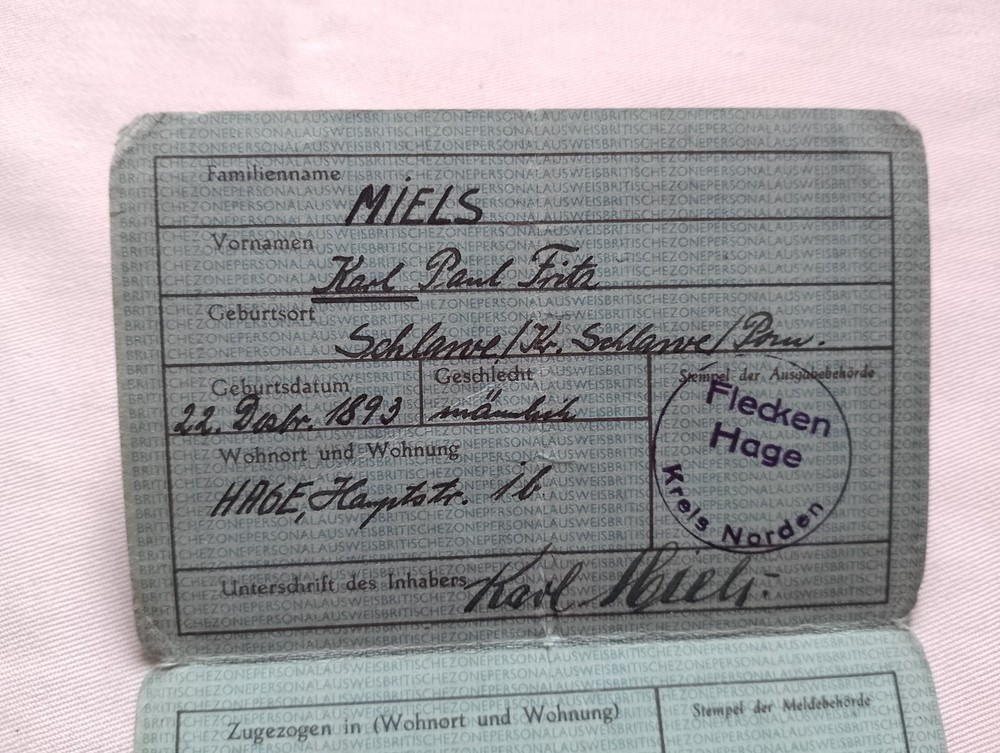 Familienname
MIELS
Vornamen
Karl Paul Fritz
Geburtsort
Schlawe/Kr. Schlawe/Pom.
Geburtsdatum
22. Dezbr. 1893
Geschlecht
männlich
Stempel der Ausgabebehörde
Flecken
Hage
Kreis Norden
Wohnort und Wohnung
HAGE, Hauptstr. 16
Unterschrift des Inhabers
Karl Miels
Zugezogen in (Wohnort und Wohnung)
Stempel der Meldebehörde
BRITISCHEZONEPERSONALAUSWEIS